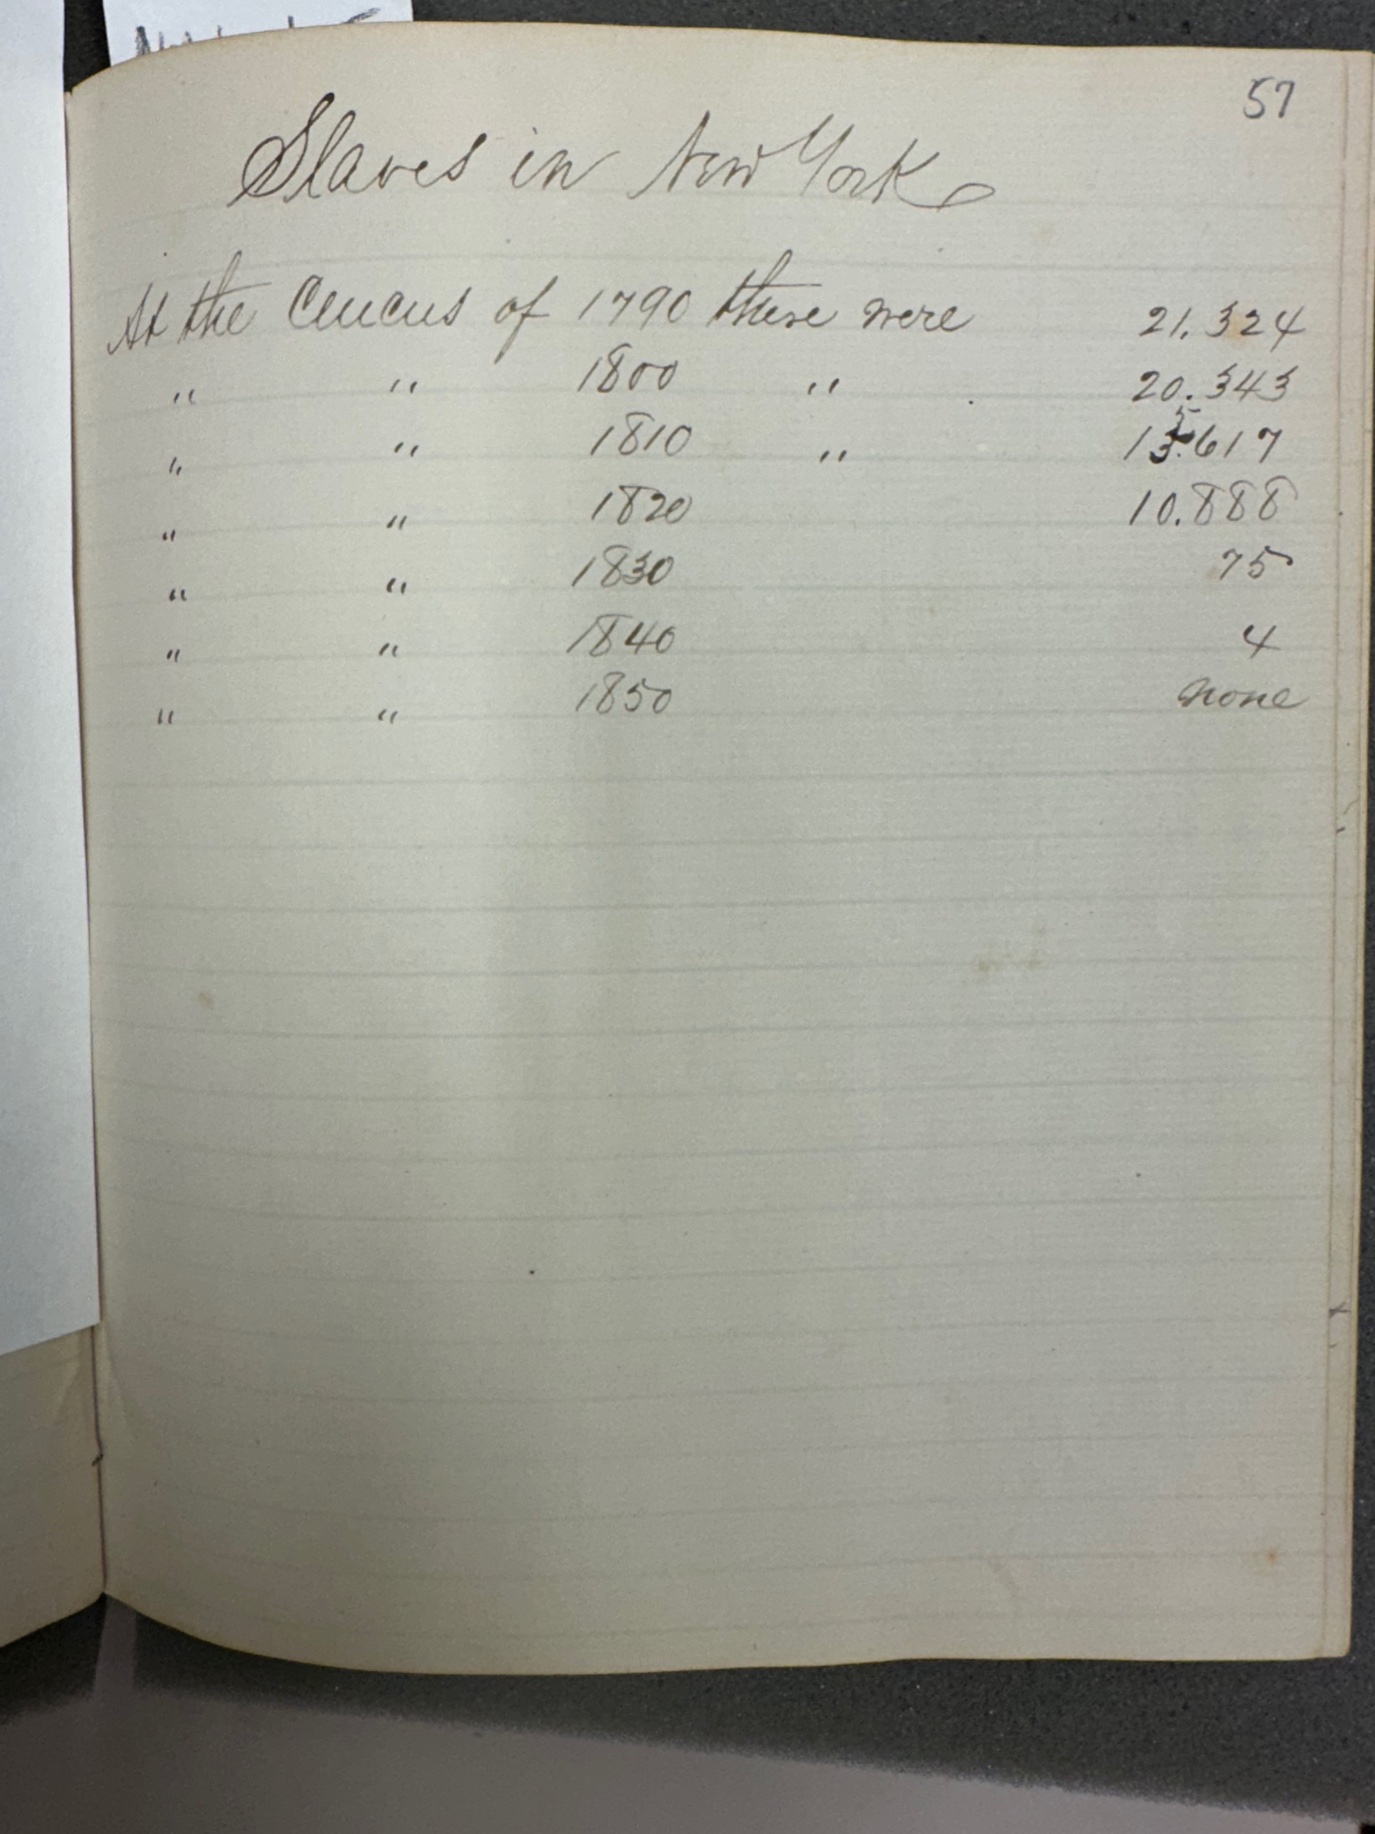 57
Slaves in New York
At the Cencus of 1790 there were 21.324
" " 1800 " 20.343
" " 1810 " 15.617
" " 1820 10.888
" " 1830 75
" " 1840 4
" " 1850 none